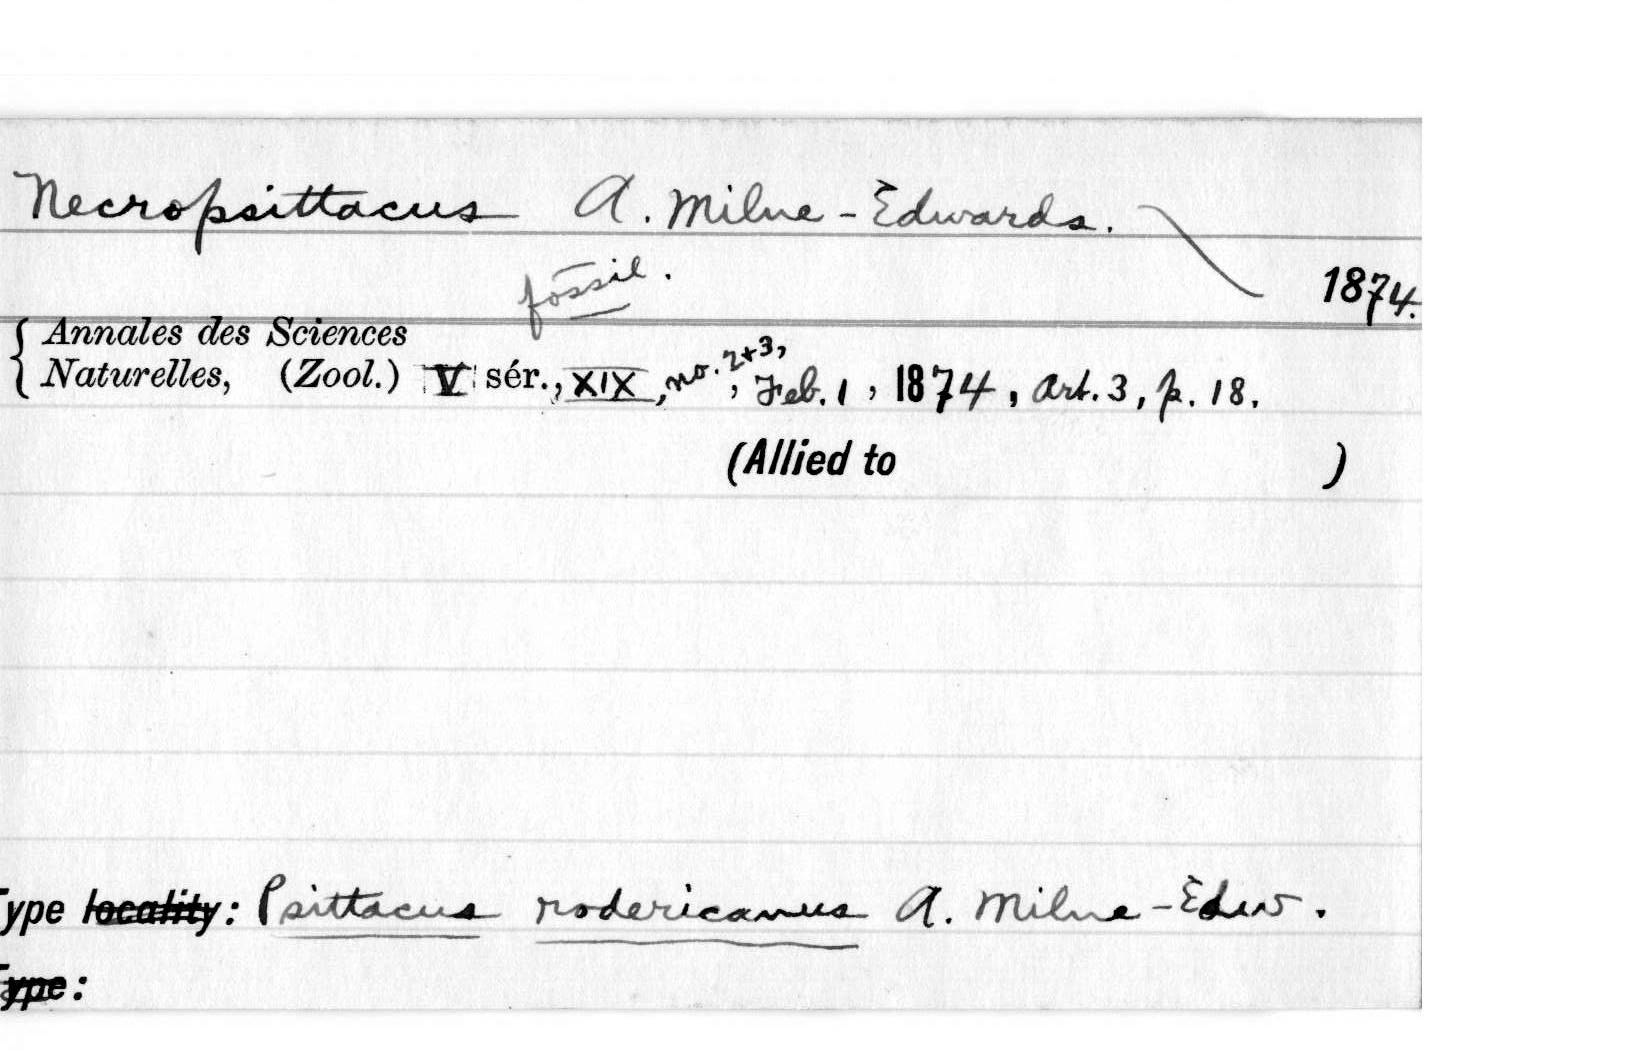 Necropsittacus A. Milne-Edwards.
fossil.
1874.
Annales des Sciences
Naturelles, (Zool.) V sér., XIX, no. 2+3, Feb. 1, 1874, Art. 3, p. 18.
(Allied to )
Type locality: Psittacus rodericanus A. Milne-Edw.
Type: